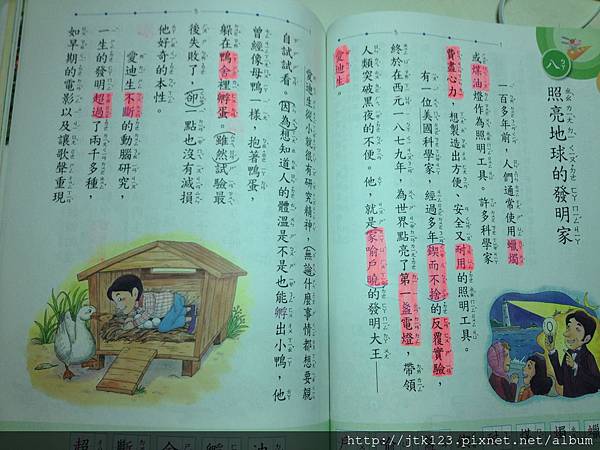 八
照亮地球的發明家
一百多年前，人們通常使用蠟燭
或煤油燈作為照明工具。許多科學家
費盡心力，想製造出方便、安全又耐用的照明工具。
有一位美國科學家，經過多年鍥而不捨的反覆實驗，
終於在西元一八七九年，為世界點亮了第一盞電燈，帶領
人類突破黑夜的不便。他，就是家喻戶曉的發明大王——
愛迪生。
愛迪生從小就很有研究精神，無論什麼事情都想要親
自試試看。因為想知道人的體溫是不是也能孵出小鴨，他
曾經像母鴨一樣，抱著鴨蛋，
躲在鴨舍裡孵蛋。雖然試驗最
後失敗了，卻一點也沒有減損
他好奇的本性。
愛迪生不斷的動腦研究，
一生的發明超過了兩千多種，
如早期的電影以及讓歌聲重現
http://jtk123.pixnet.net/album